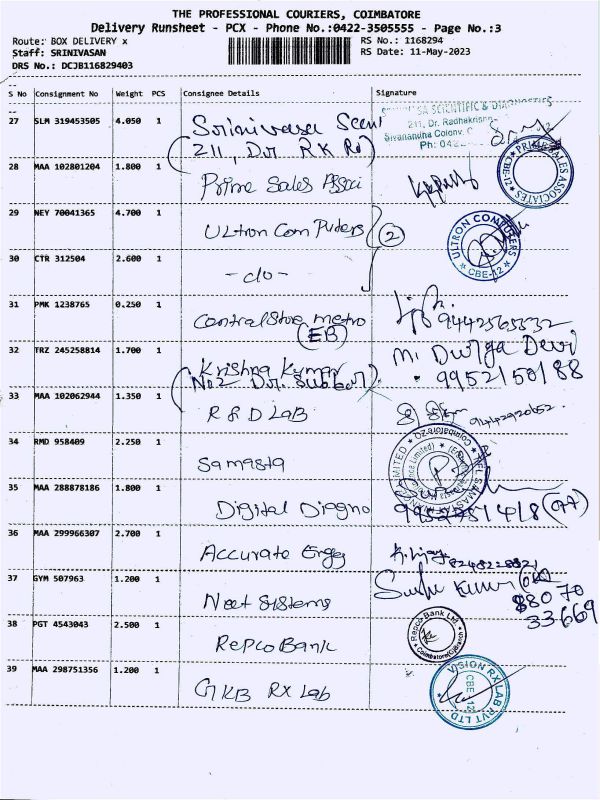 THE PROFESSIONAL COURIERS, COIMBATORE
Delivery Runsheet - PCX - Phone No.:0422-3505555 - Page No.:3
Route: BOX DELIVERY x
RS No.: 1168294
Staff: SRINIVASAN
RS Date: 11-May-2023
DRS No.: DCJB116829403
S No Consignment No Weight PCS Consignee Details Signature
27 SLM 319453505 4.050 1 Srinivasa Scent
(211, Dr. RK Rd)
SA SCIENTIFIC & DIAGNOSTICS
211, Dr. Radhakrishna
Sivanandha Colony, C
Ph: 042
28 MAA 102801204 1.800 1 Prime Sales Associ
PRIME SALES ASSOCIATES
CBE-12
29 NEY 70041365 4.700 1 Ultron Computers
2
ULTRON COMPUTERS
CBE-12
30 CTR 312504 2.600 1 -do-
31 PMK 1238765 0.250 1 Central Store metro
(EB)
9442565532
32 TRZ 245258814 1.700 1 Krishna Kumar
M. Durga Devi
9952150188
33 MAA 102062944 1.350 1 R & D LAB
9442920652
34 RMD 958409 2.250 1 Samasta
35 MAA 288878186 1.800 1 Digital Diagno
36 MAA 299966307 2.700 1 Accurate Engg
37 GYM 507963 1.200 1 Neet Systems
88070
33669
38 PGT 4543043 2.500 1 Repco Bank
Repco Bank Ltd
39 MAA 298751356 1.200 1 GKB RX Lab
VISION RX LAB PVT LTD
CBE-12